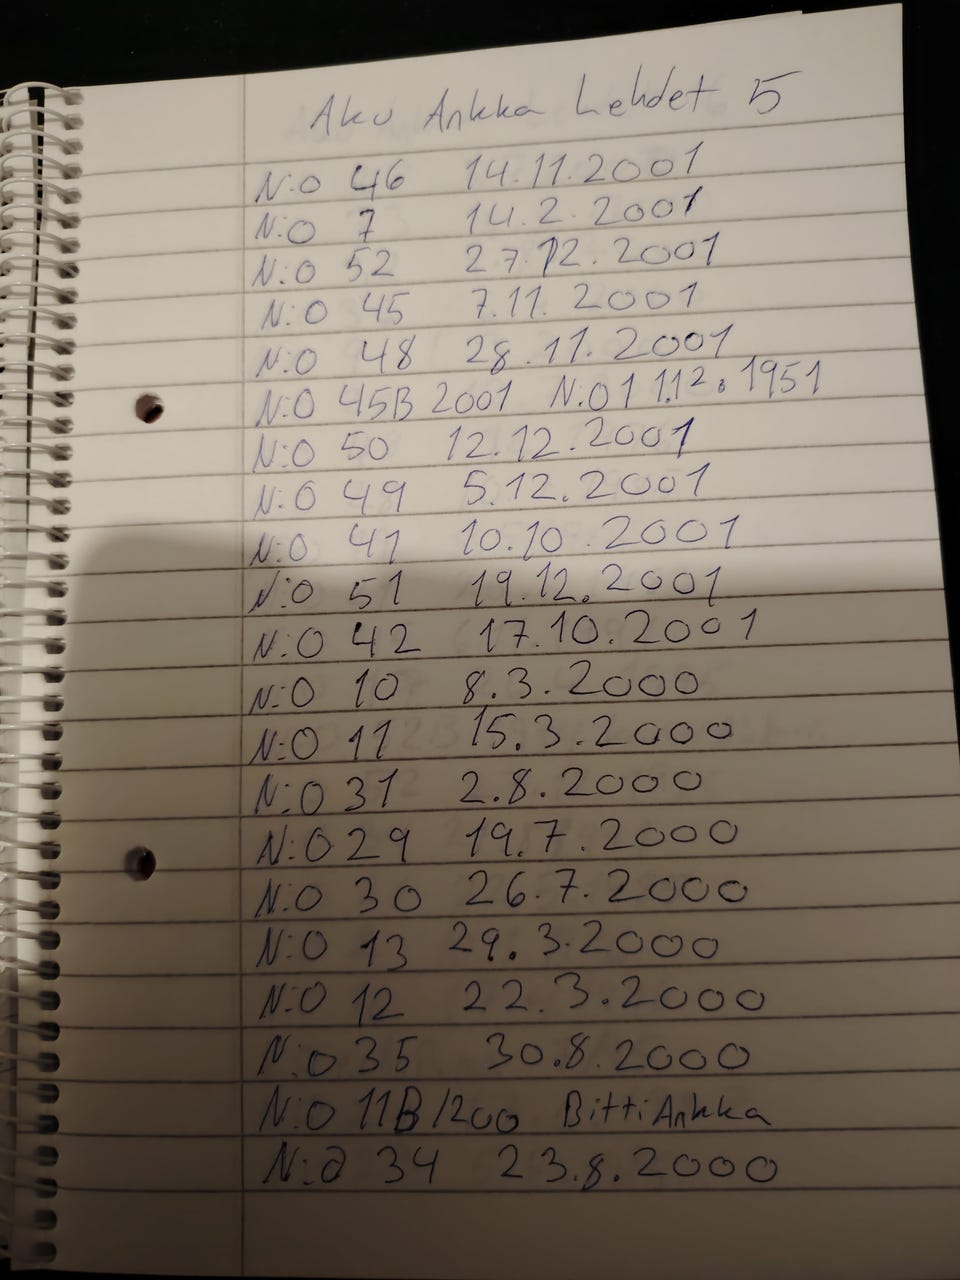 Aku Ankka Lehdet 5
N:O 46 14.11.2001
N:O 7 14.2.2001
N:O 52 27.12.2001
N:O 45 7.11.2001
N:O 48 28.11.2001
N:O 45B 2001 N:O1 1.12.1951
N:O 50 12.12.2001
N:O 49 5.12.2001
N:O 41 10.10.2001
N:O 51 19.12.2001
N:O 42 17.10.2001
N:O 10 8.3.2000
N:O 11 15.3.2000
N:O 31 2.8.2000
N:O 29 19.7.2000
N:O 30 26.7.2000
N:O 13 29.3.2000
N:O 12 22.3.2000
N:O 35 30.8.2000
N:O 11B/200 BittiAnkka
N:O 34 23.8.2000